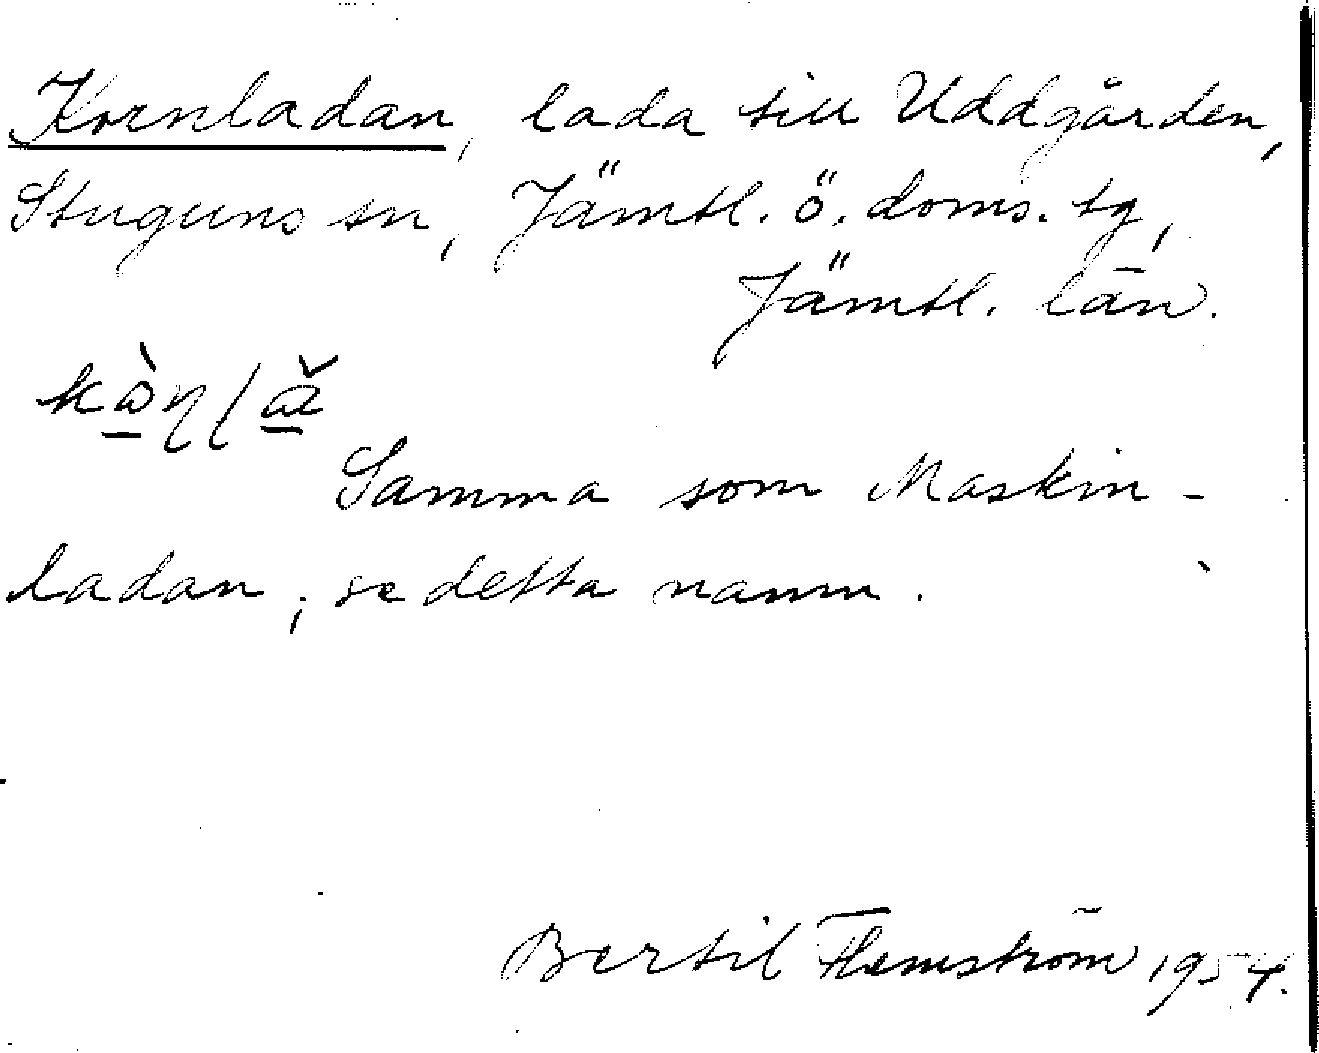 Kornladan, lada till Uddgården,
Stuguns sn, Jämtl. ö. doms. tg,
Jämtl. län.
Samma som Maskin-
ladan; se detta namn.
Bertil Flemström 1954.